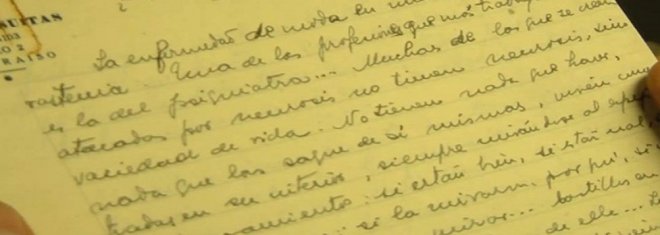 UITAS
RAISO
La enfermedad de moda en un
rastenia. Una de las profesiones que más trabaj
es la del psiquiatra... Muchas de las que se creen
atacadas por neurosis no tienen neurosis, sino
vaciedad de vida. No tienen nada que hacer,
nada que las saque de sí mismas, viven
tradas en su interior, siempre mirándose al espejo
amiento: si están bien, si están mal
si la miraron, por qué, si
de ella...